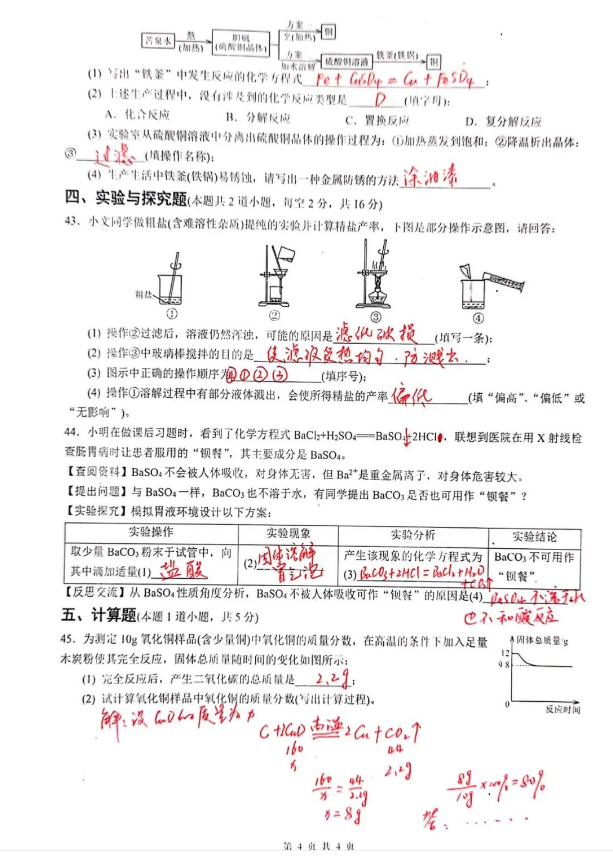 苦泉水 热(加热) 胆矾(硫酸铜晶体) 方案一 空(加热) 铜
方案 加水溶解 硫酸铜溶液 铁釜(铁锅) 铜
(1) 写出“铁釜”中发生反应的化学方程式 Fe + CuSO4 = Cu + FeSO4 ;
(2) 上述生产过程中，没有涉及到的化学反应类型是 D (填字母);
A. 化合反应 B. 分解反应 C. 置换反应 D. 复分解反应
(3) 实验室从硫酸铜溶液中分离出硫酸铜晶体的操作过程为：①加热蒸发到饱和；②降温析出晶体;
③ 过滤 (填操作名称);
(4) 生产生活中铁釜(铁锅)易锈蚀，请写出一种金属防锈的方法 涂油漆 。
四、实验与探究题(本题共2道小题，每空2分，共16分)
43. 小文同学做粗盐(含难溶性杂质)提纯的实验并计算精盐产率，下图是部分操作示意图，请回答:
粗盐
① ② ③ ④
(1) 操作②过滤后，溶液仍然浑浊，可能的原因是 滤纸破损 (填写一条);
(2) 操作③中玻璃棒搅拌的目的是 使滤液受热均匀，防溅出. ;
(3) 图示中正确的操作顺序为 ④①②③ (填序号);
(4) 操作①溶解过程中有部分液体溅出，会使所得精盐的产率 偏低 (填“偏高”、“偏低”或
“无影响”)。
44. 小明在做课后习题时，看到了化学方程式 BaCl₂+H₂SO₄===BaSO₄↓+2HCl，联想到医院在用X射线检
查肠胃病时让患者服用的“钡餐”，其主要成分是 BaSO₄。
【查阅资料】BaSO₄不会被人体吸收，对身体无害，但 Ba²⁺是重金属离子，对身体危害较大。
【提出问题】与 BaSO₄一样，BaCO₃也不溶于水，有同学提出 BaCO₃是否也可用作“钡餐”？
【实验探究】模拟胃液环境设计以下方案:
实验操作 实验现象 实验分析 实验结论
取少量 BaCO₃粉末于试管中，向 (2) 固体溶解 产生该现象的化学方程式为 BaCO₃不可用作
其中滴加适量(1) 盐酸 冒气泡 (3) BaCO3+2HCl=BaCl2+H2O+CO2↑ “钡餐”.
【反思交流】从 BaSO₄性质角度分析，BaSO₄不被人体吸收可作“钡餐”的原因是(4) BaSO4 不溶于水
也不和酸反应
五、计算题(本题1道小题，共5分)
45. 为测定10g氧化铜样品(含少量铜)中氧化铜的质量分数，在高温的条件下加入足量
木炭粉使其完全反应，固体总质量随时间的变化如图所示:
固体总质量/g
12
9.8
0 反应时间
(1) 完全反应后，产生二氧化碳的总质量是 2.2g ;
(2) 试计算氧化铜样品中氧化铜的质量分数(写出计算过程)。
解：设CuO的质量为x
C+2CuO 高温 2Cu+CO2↑
160 44
x 2.2g
160/x = 44/2.2g
x=8g
8g/10g ×100%=80%
答：......
第 4 页 共 4 页